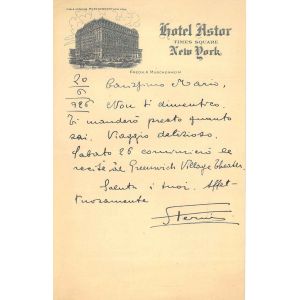 Hotel Astor
TIMES SQUARE
New York
FRED'K A. MUSCHENHEIM
20
6
926
Carissimo Mario,
Non ti dimentico.
Ti manderò presto quanto
sai. Viaggio delizioso.
Sabato 26 comincierò le
recite al Greenwich Village Theater.
Saluta i tuoi. Affet-
tuosamente